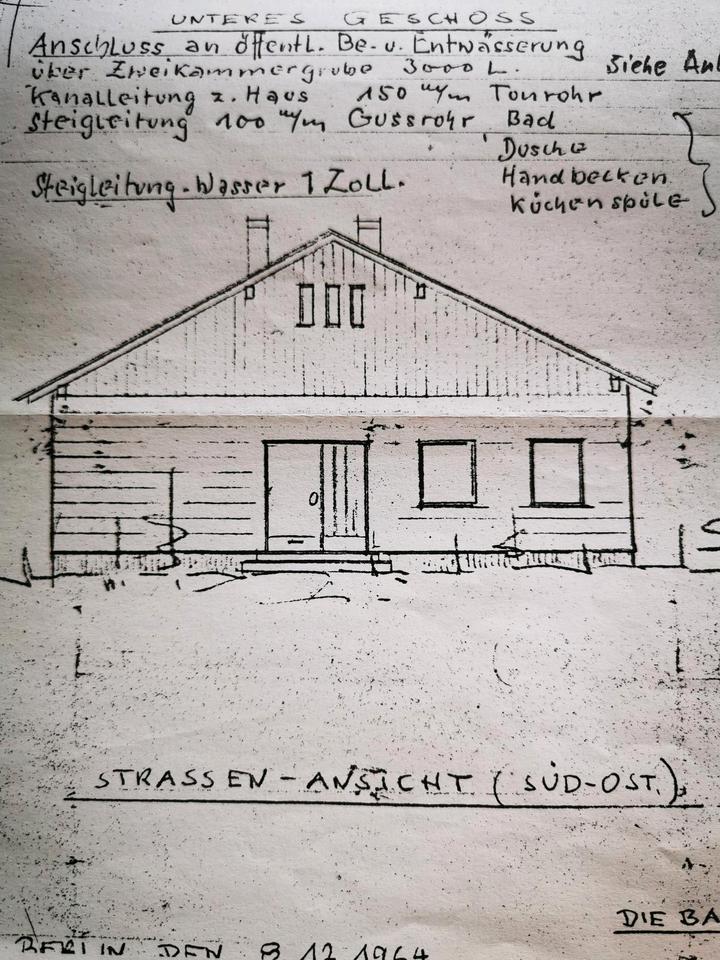 UNTERES GESCHOSS
Anschluss an öffentl. Be- u. Entwässerung
über Zweikammergrube 3000 L. Siehe Anl
Kanalleitung z. Haus 150 m/m Tonrohr
Steigleitung 100 m/m Gussrohr Bad
Dusche
Handbecken
Küchenspüle
Steigleitung-Wasser 1 Zoll.
STRASSEN-ANSICHT (SÜD-OST.)
DIE BA
BERLIN DEN 8.12.1964